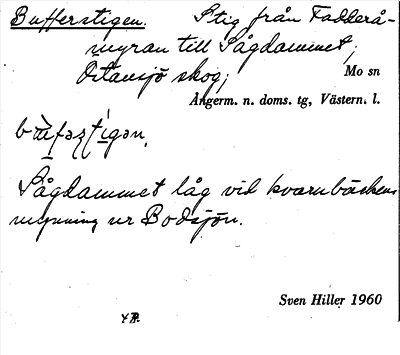 Bufferstigen. Stig från Fadderå-
myran till Sågdammet,
skog;
Mo sn
Ångerm. n. doms. tg, Västern. l.
Sågdammet låg vid kvarnbäckens
mynning ur Bodsjön.
Sven Hiller 1960